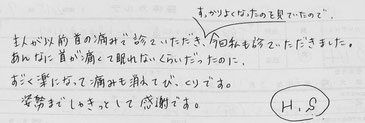 すっかりよくなったのを見ていたので、
主人が以前首の痛みで診ていただき、今回私も診ていただきました。
あんなに首が痛くて眠れないくらいだったのに、
すごく楽になって痛みも消えてびっくりです。
姿勢までしゃきっとして感謝です。
S.H